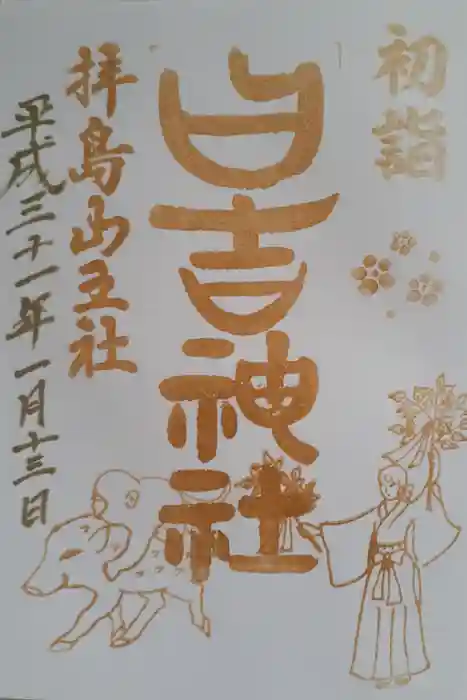 初詣
日吉神社
拝島山王社
平成三十一年一月十三日